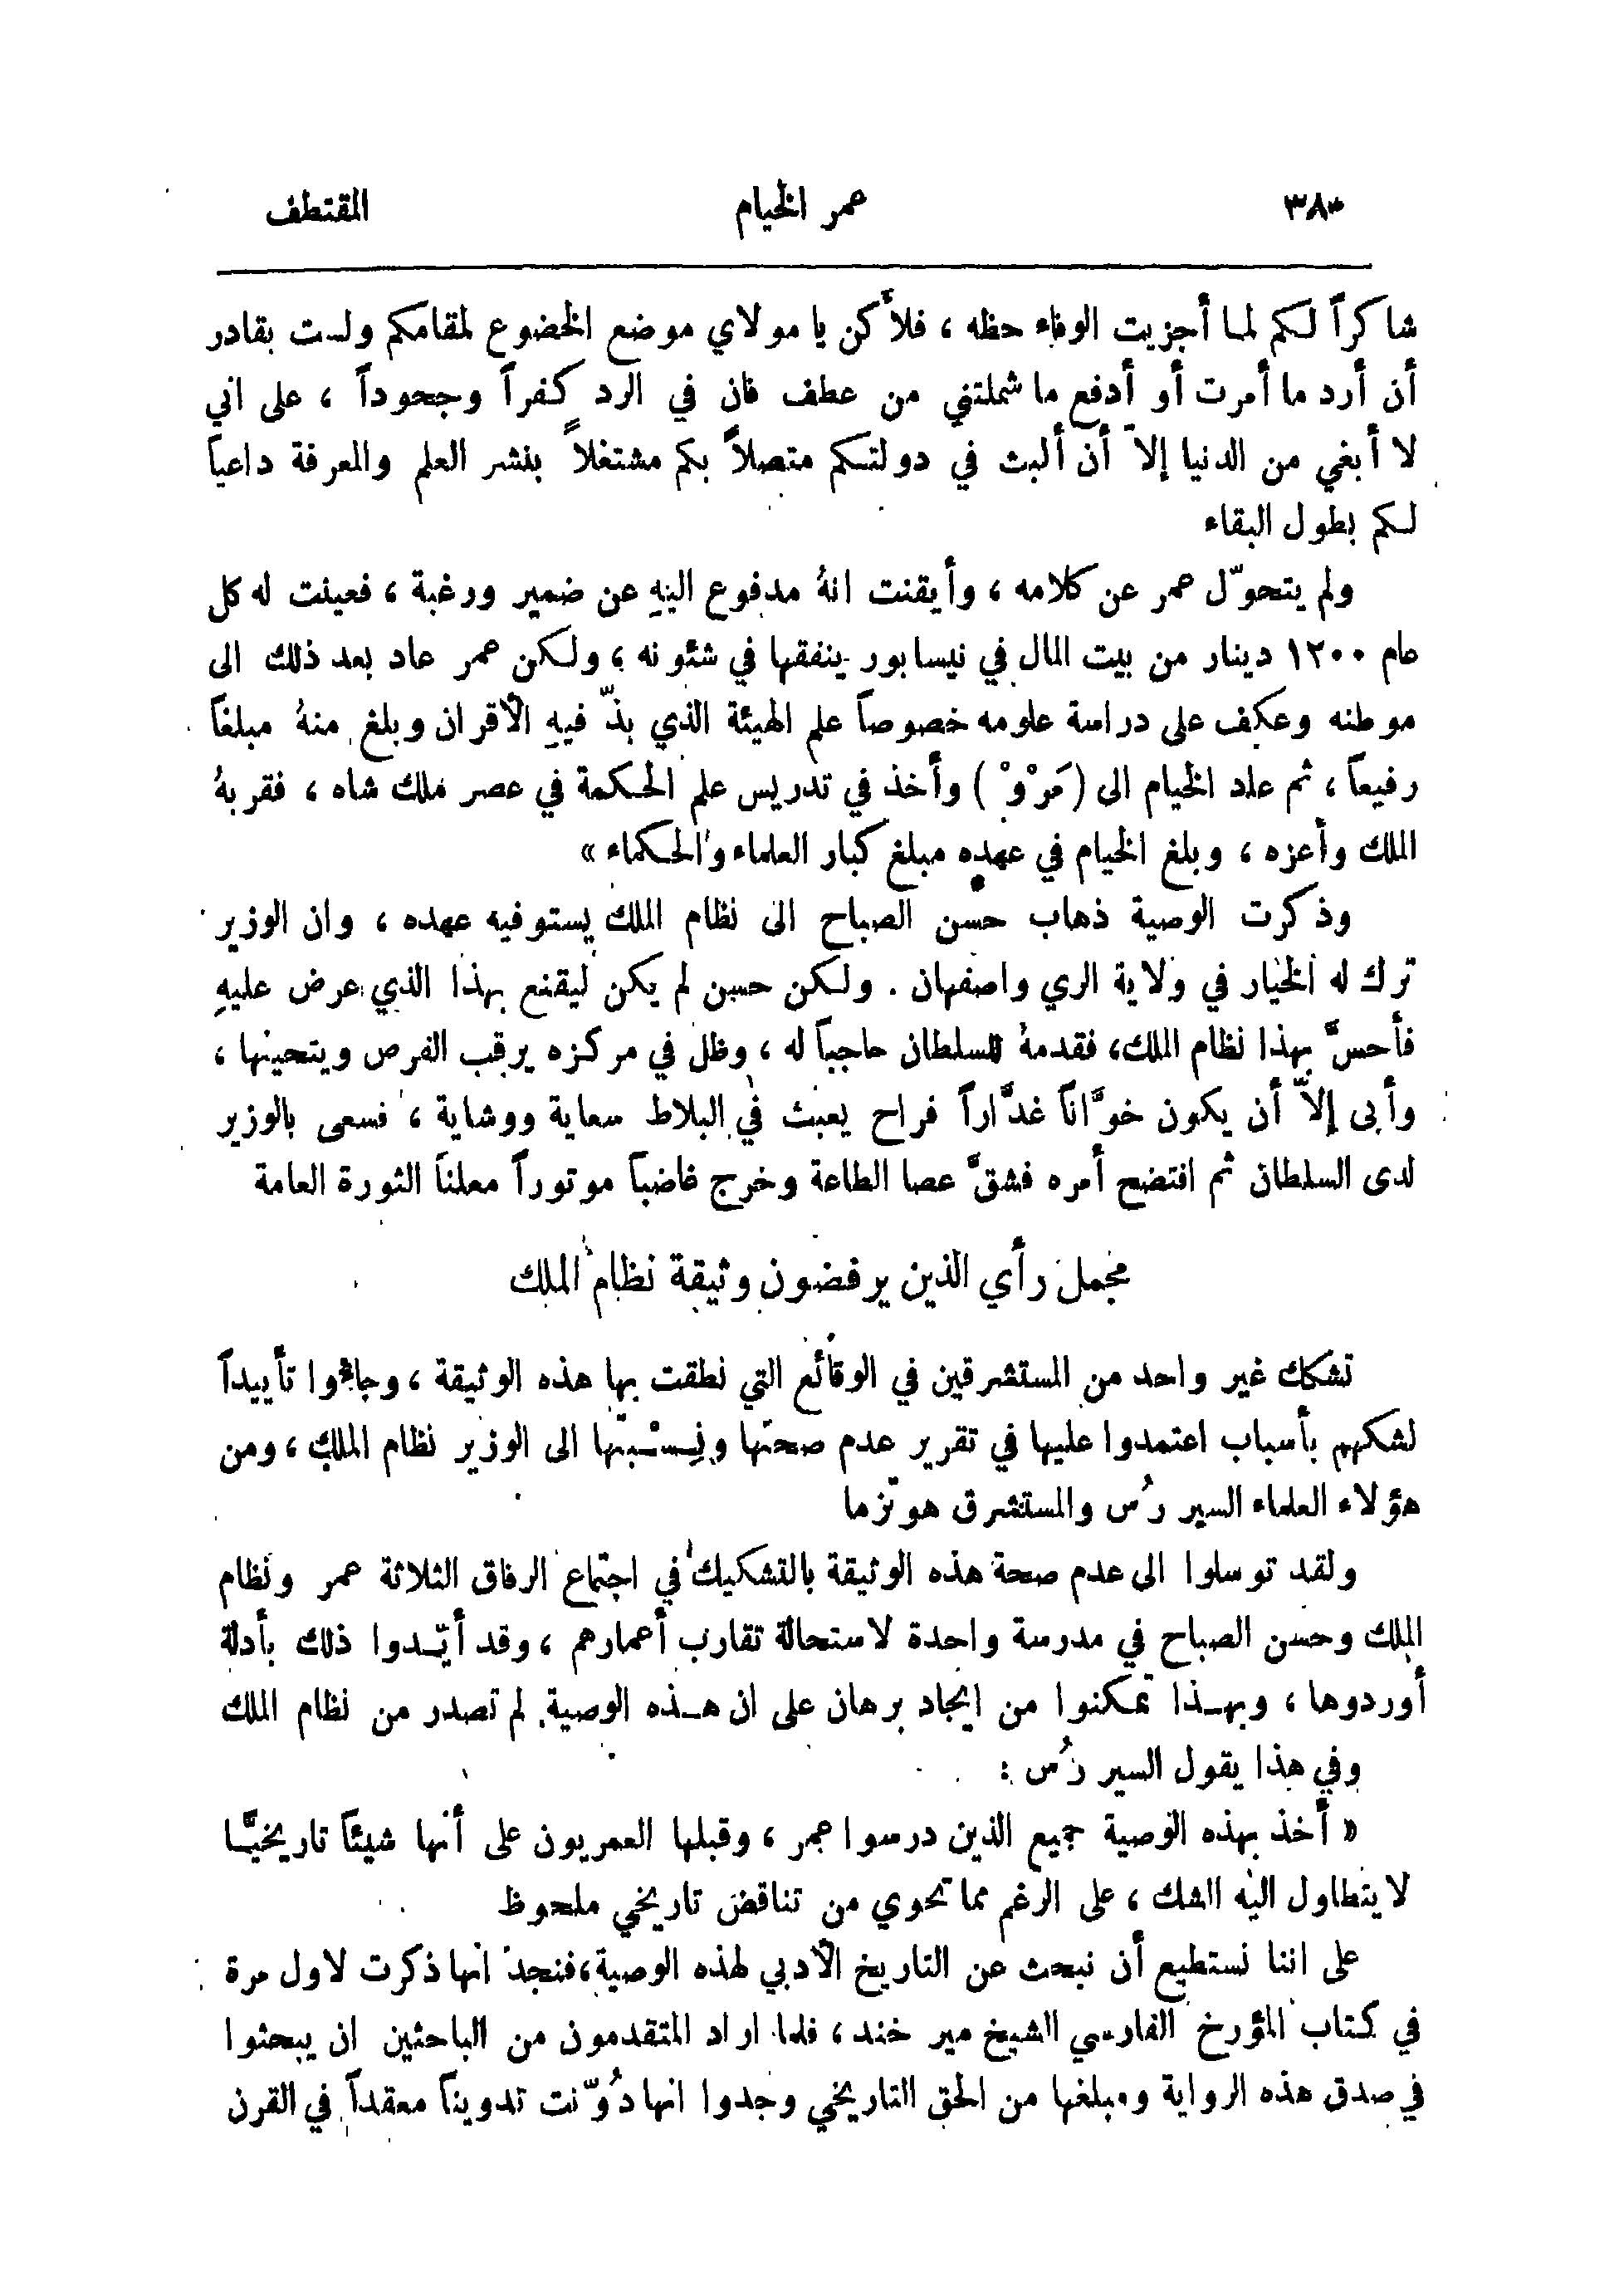 ٣٨٣ عمر الخيام المقتطف
شاكراً لكم لما أجزيت الوفاء حظه ، فلأكن يا مولاي موضع الخضوع لمقامكم ولست بقادر
أن أرد ما أمرت أو أدفع ما شملتني من عطف فان في الرد كفراً وجحوداً ، على اني
لا أبغي من الدنيا إلاّ أن ألبث في دولتكم متصلاً بكم مشتغلاً بنشر العلم والمعرفة داعياً
لكم بطول البقاء
ولم يتحوّل عمر عن كلامه ، وأيقنت انهُ مدفوع اليهِ عن ضمير ورغبة ، فعينت له كل
عام ١٢٠٠ دينار من بيت المال في نيسابور ينفقها في شئونه ؛ ولكن عمر عاد بعد ذلك الى
موطنه وعكف على دراسة علومه خصوصاً علم الهيئة الذي بذّ فيهِ الأقران وبلغ منهُ مبلغاً
رفيعاً ، ثم عاد الخيام الى ( مَرْوْ ) وأخذ في تدريس علم الحكمة في عصر ملك شاه ، فقربهُ
الملك وأعزه ، وبلغ الخيام في عهده مبلغ كبار العلماء والحكماء »
وذكرت الوصية ذهاب حسن الصباح الى نظام الملك يستوفيه عهده ، وان الوزير
ترك له الخيار في ولاية الري واصفهان . ولكن حسن لم يكن ليقنع بهذا الذي عرض عليهِ
فأحسَّ بهذا نظام الملك، فقدمهُ للسلطان حاجباً له ، وظل في مركزه يرقب الفرص ويتحينها ،
وأبى إلاّ أن يكون خوَّاناً غدَّاراً فراح يعبث في البلاط سعاية ووشاية ، فسعى بالوزير
لدى السلطان ثم افتضح أمره فشقَّ عصا الطاعة وخرج غاضباً موتوراً معلناً الثورة العامة
مجمل رأي الذين يرفضون وثيقة نظام الملك
تشكك غير واحد من المستشرقين في الوقائع التي نطقت بها هذه الوثيقة ، وجاؤوا تأييداً
لشكهم بأسباب اعتمدوا عليها في تقرير عدم صحتها ونِسْبتها الى الوزير نظام الملك ، ومن
هؤلاء العلماء السير رُس والمستشرق هوتزما
ولقد توسلوا الى عدم صحة هذه الوثيقة بالتشكيك في اجتماع الرفاق الثلاثة عمر ونظام
الملك وحسن الصباح في مدرسة واحدة لاستحالة تقارب أعمارهم ، وقد أيّدوا ذلك بأدلة
أوردوها ، وبهذا تمكنوا من ايجاد برهان على ان هذه الوصية لم تصدر من نظام الملك
وفي هذا يقول السير رُس :
« أخذ بهذه الوصية جميع الذين درسوا عمر ، وقبلها العمريون على أنها شيئاً تاريخيًّا
لا يتطاول اليه الشك ، على الرغم مما تحوي من تناقض تاريخي ملحوظ
على اننا نستطيع أن نبحث عن التاريخ الأدبي لهذه الوصية، فنجد انها ذكرت لاول مرة
في كتاب المؤرخ الفارسي الشيخ مير خند ، فلما اراد المتقدمون من الباحثين ان يبحثوا
في صدق هذه الرواية ومبلغها من الحق التاريخي وجدوا انها دُوّنت تدويناً معقداً في القرن